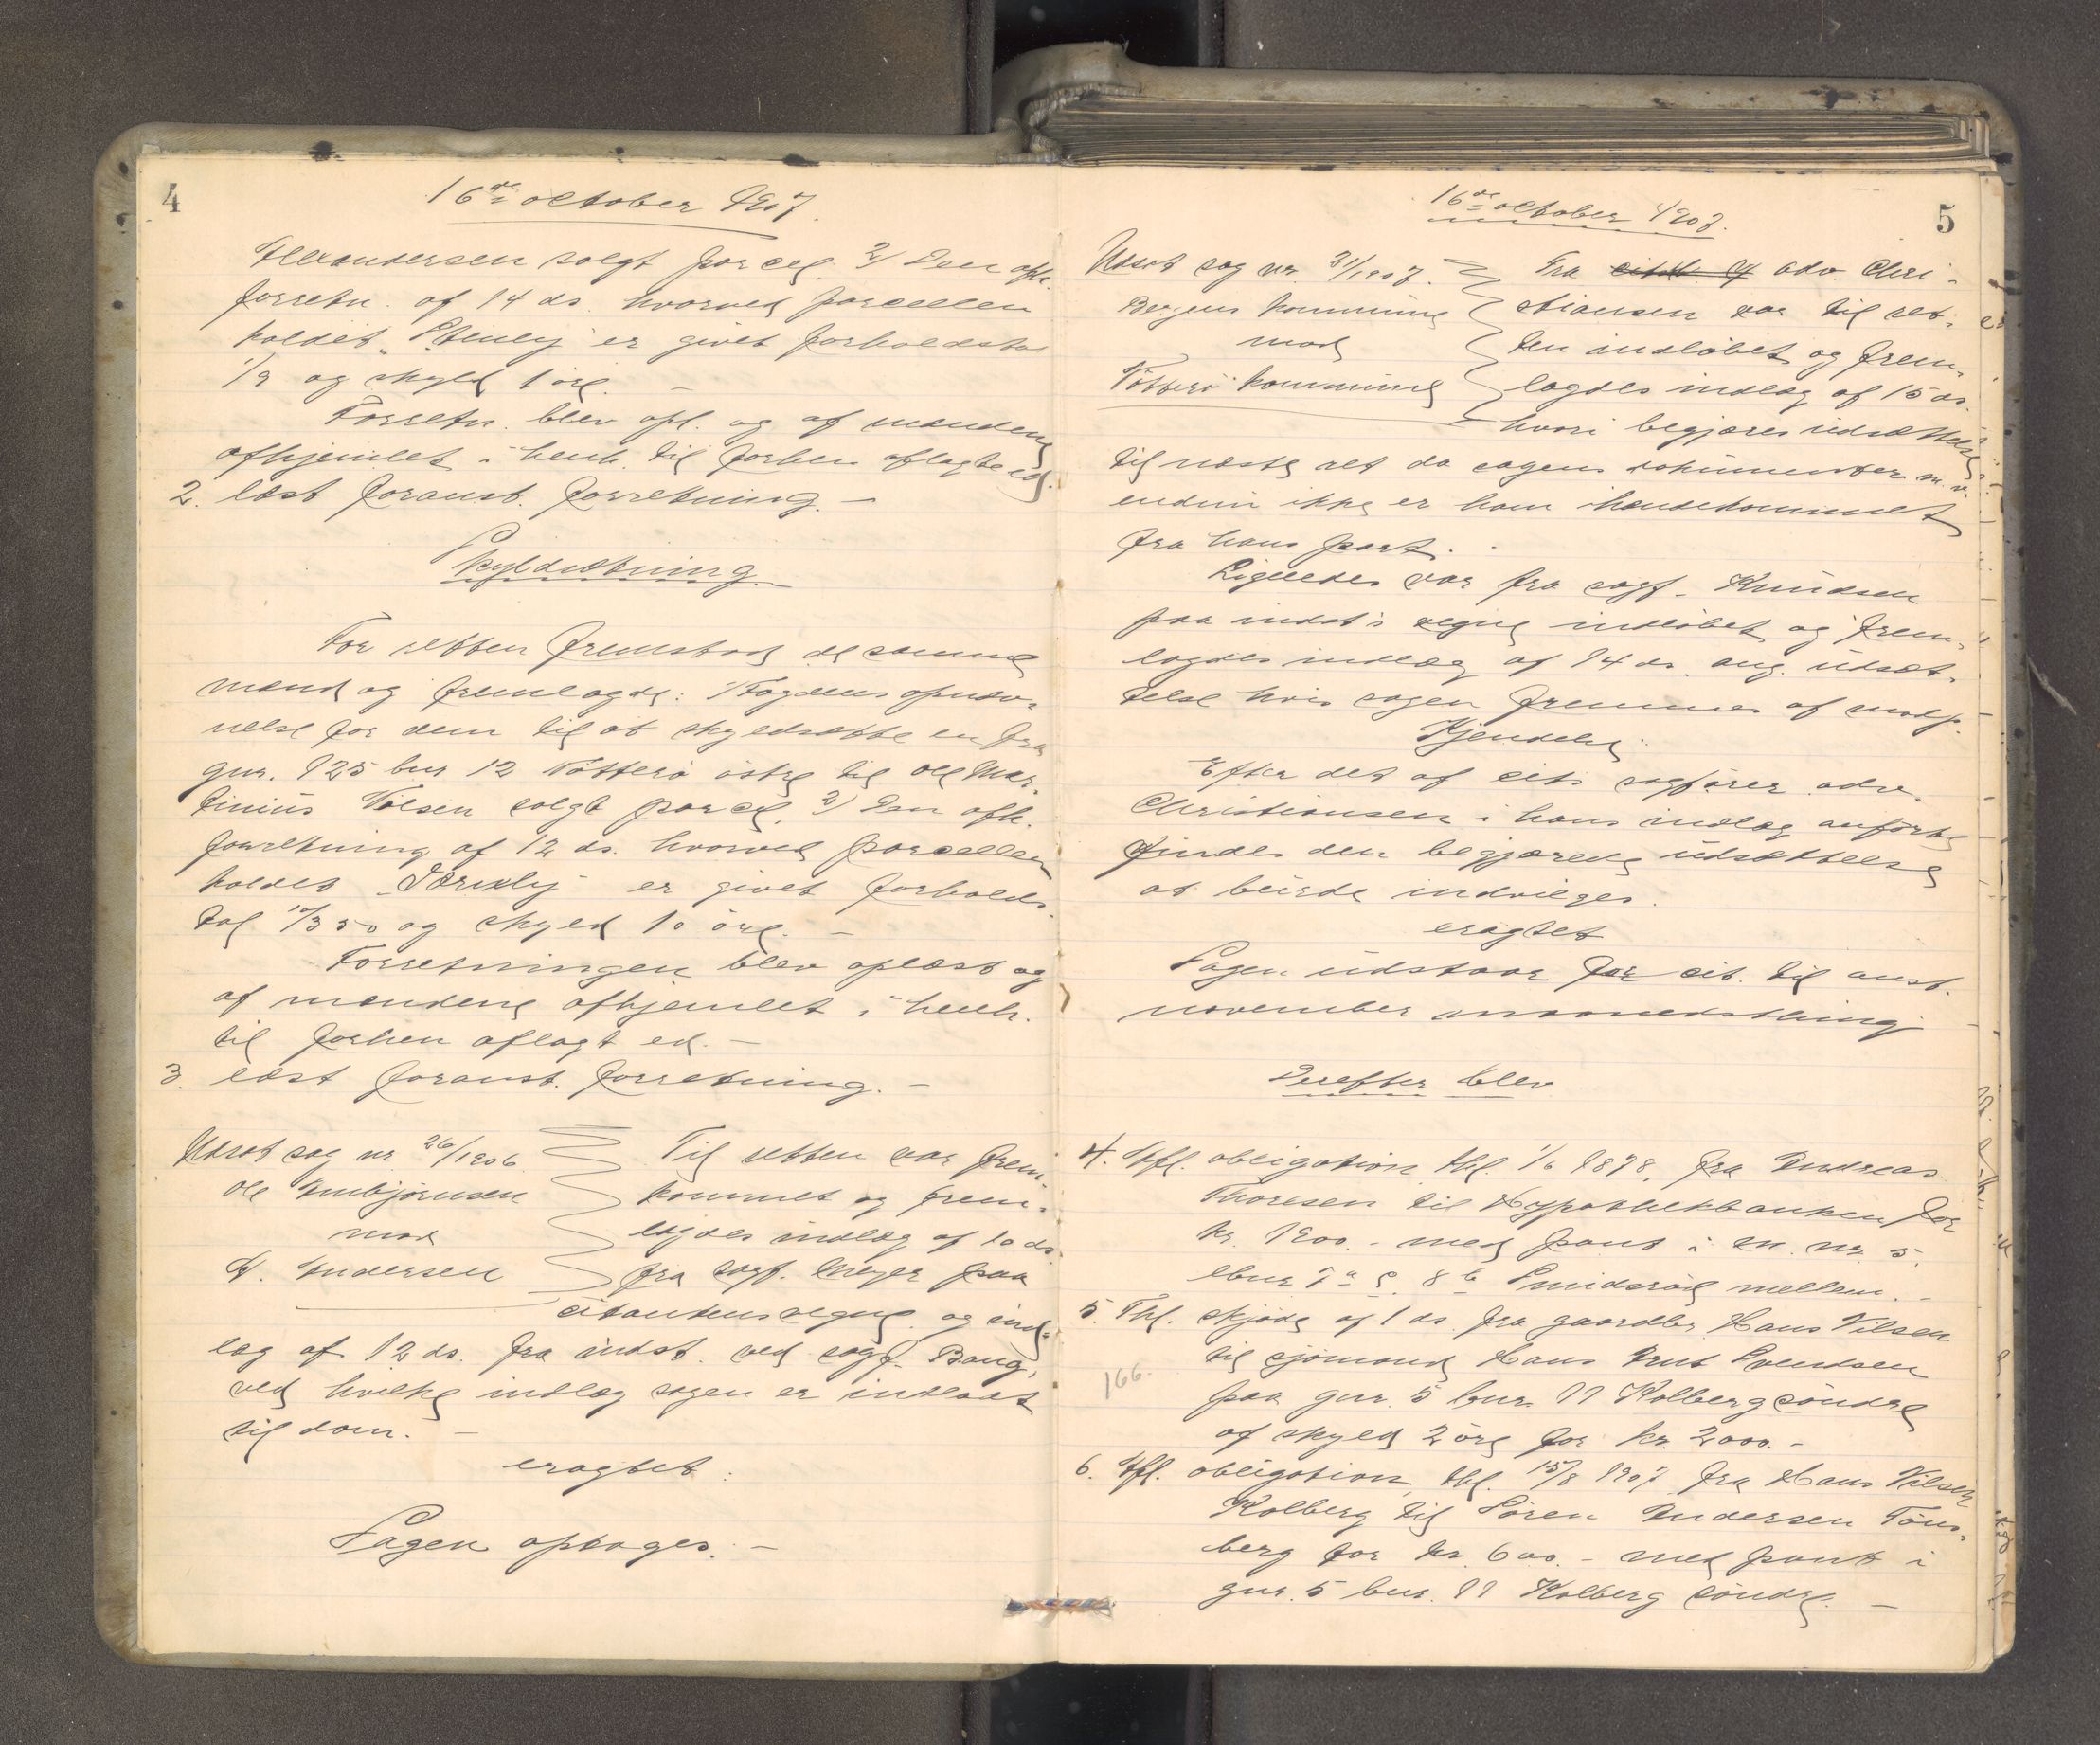 4
16de october 1907.
Alexandersen solgt parcel. 2) Den afh.
forretn. af 14 ds. hvorved parcellen
kaldet er givet forholdstal
1/9 og skyld 1 öre. –
Forretn. blev opl. og af mændene
afhjemlet i henh. til forhen aflagte ed.
2. læst foranst. forretning. –
Skyldsætning.
For retten fremstod de samme
mænd og fremlagde: 1) Fogdens opnæv-
nelse for dem til at skyldsætte en fra
gnr. 125 bnr 12 Nötterö östre til Ole Mar-
tinius Nilsen solgt parcel. 2) Den afh.
forretning af 12 ds. hvorved parcellen
kaldes er givet forholds-
tal 10/350 og skyld 10 öre. –
Forretningen blev oplæst og
af mændene afhjemlet i henh.
til forhen aflagt ed. –
3. læst foranst. forretning. –
Udsat sag nr 26/1906.
Ole Anbjörnsen
mod
A. Andersen
Til retten var frem-
kommet og frem-
lagdes indlæg af 10 ds.
fra sagf. Meyer paa
citantens vegne og ind-
læg af 12 ds. fra indst. ved sagf. Bang,
ved hvilke indlæg sagen er indladt
til dom. –
eragtet:
Sagen optages. –
5
16de october 1907.
Udsat sag nr. 21/1907.
Bergens kommune
mod
Nötterö kommune
Fra adv. Chri-
stiansen var til ret-
ten indløbet og frem-
lagdes indlæg af 15 ds.
hvori begjæres udsættelse
til næste ret da sagens dokumenter m. v.
endnu ikke er ham ihændekommet
fra hans part. -
Ligeledes var fra sagf. Knudsen
paa indst's vegne indløbet og frem-
lagdes indlæg af 14 ds. ang. udsæt-
telse hvis sagen fremmes af modp.
Kjendelse:
Efter det af cit's sagfører adv.
Christiansen i hans indlæg anførte
findes den begjærede udsættelse
at burde indvilges.
eragtet
Sagen udstaar for cit. til anst.
november maanedsthing.
Derefter blev
4. Afl. obligation thl. 1/6 1878, fra Andreas
Thoresen til Hypothekbanken for
kr. 1900.- med pant i m. nr. 5,
lbnr 7a & 8b Smidsröd mellem. -
5. Thl. skjøde af 1 ds. fra gaardbr. Hans Nilsen
til sjömand Hans Arnt Svendsen
166.
paa gnr. 5 bnr. 11 Kolberg söndre
af skyld 2 öre for kr. 2000. -
6. Afl. obligation, thl. 15/8 1907 fra Hans Nilsen
Kolberg til Sören Andersen Töns-
berg for kr. 600. - med pant i
gnr. 5 bnr. 11 Kolberg söndre. –